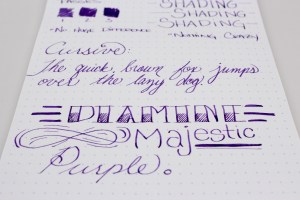 SHADING
SHADING
SHADING
1 2 3
~No Huge Difference
~Nothing Crazy
Cursive:
The quick, brown fox jumps
over the lazy dog.
DIAMINE
Majestic
Purple.